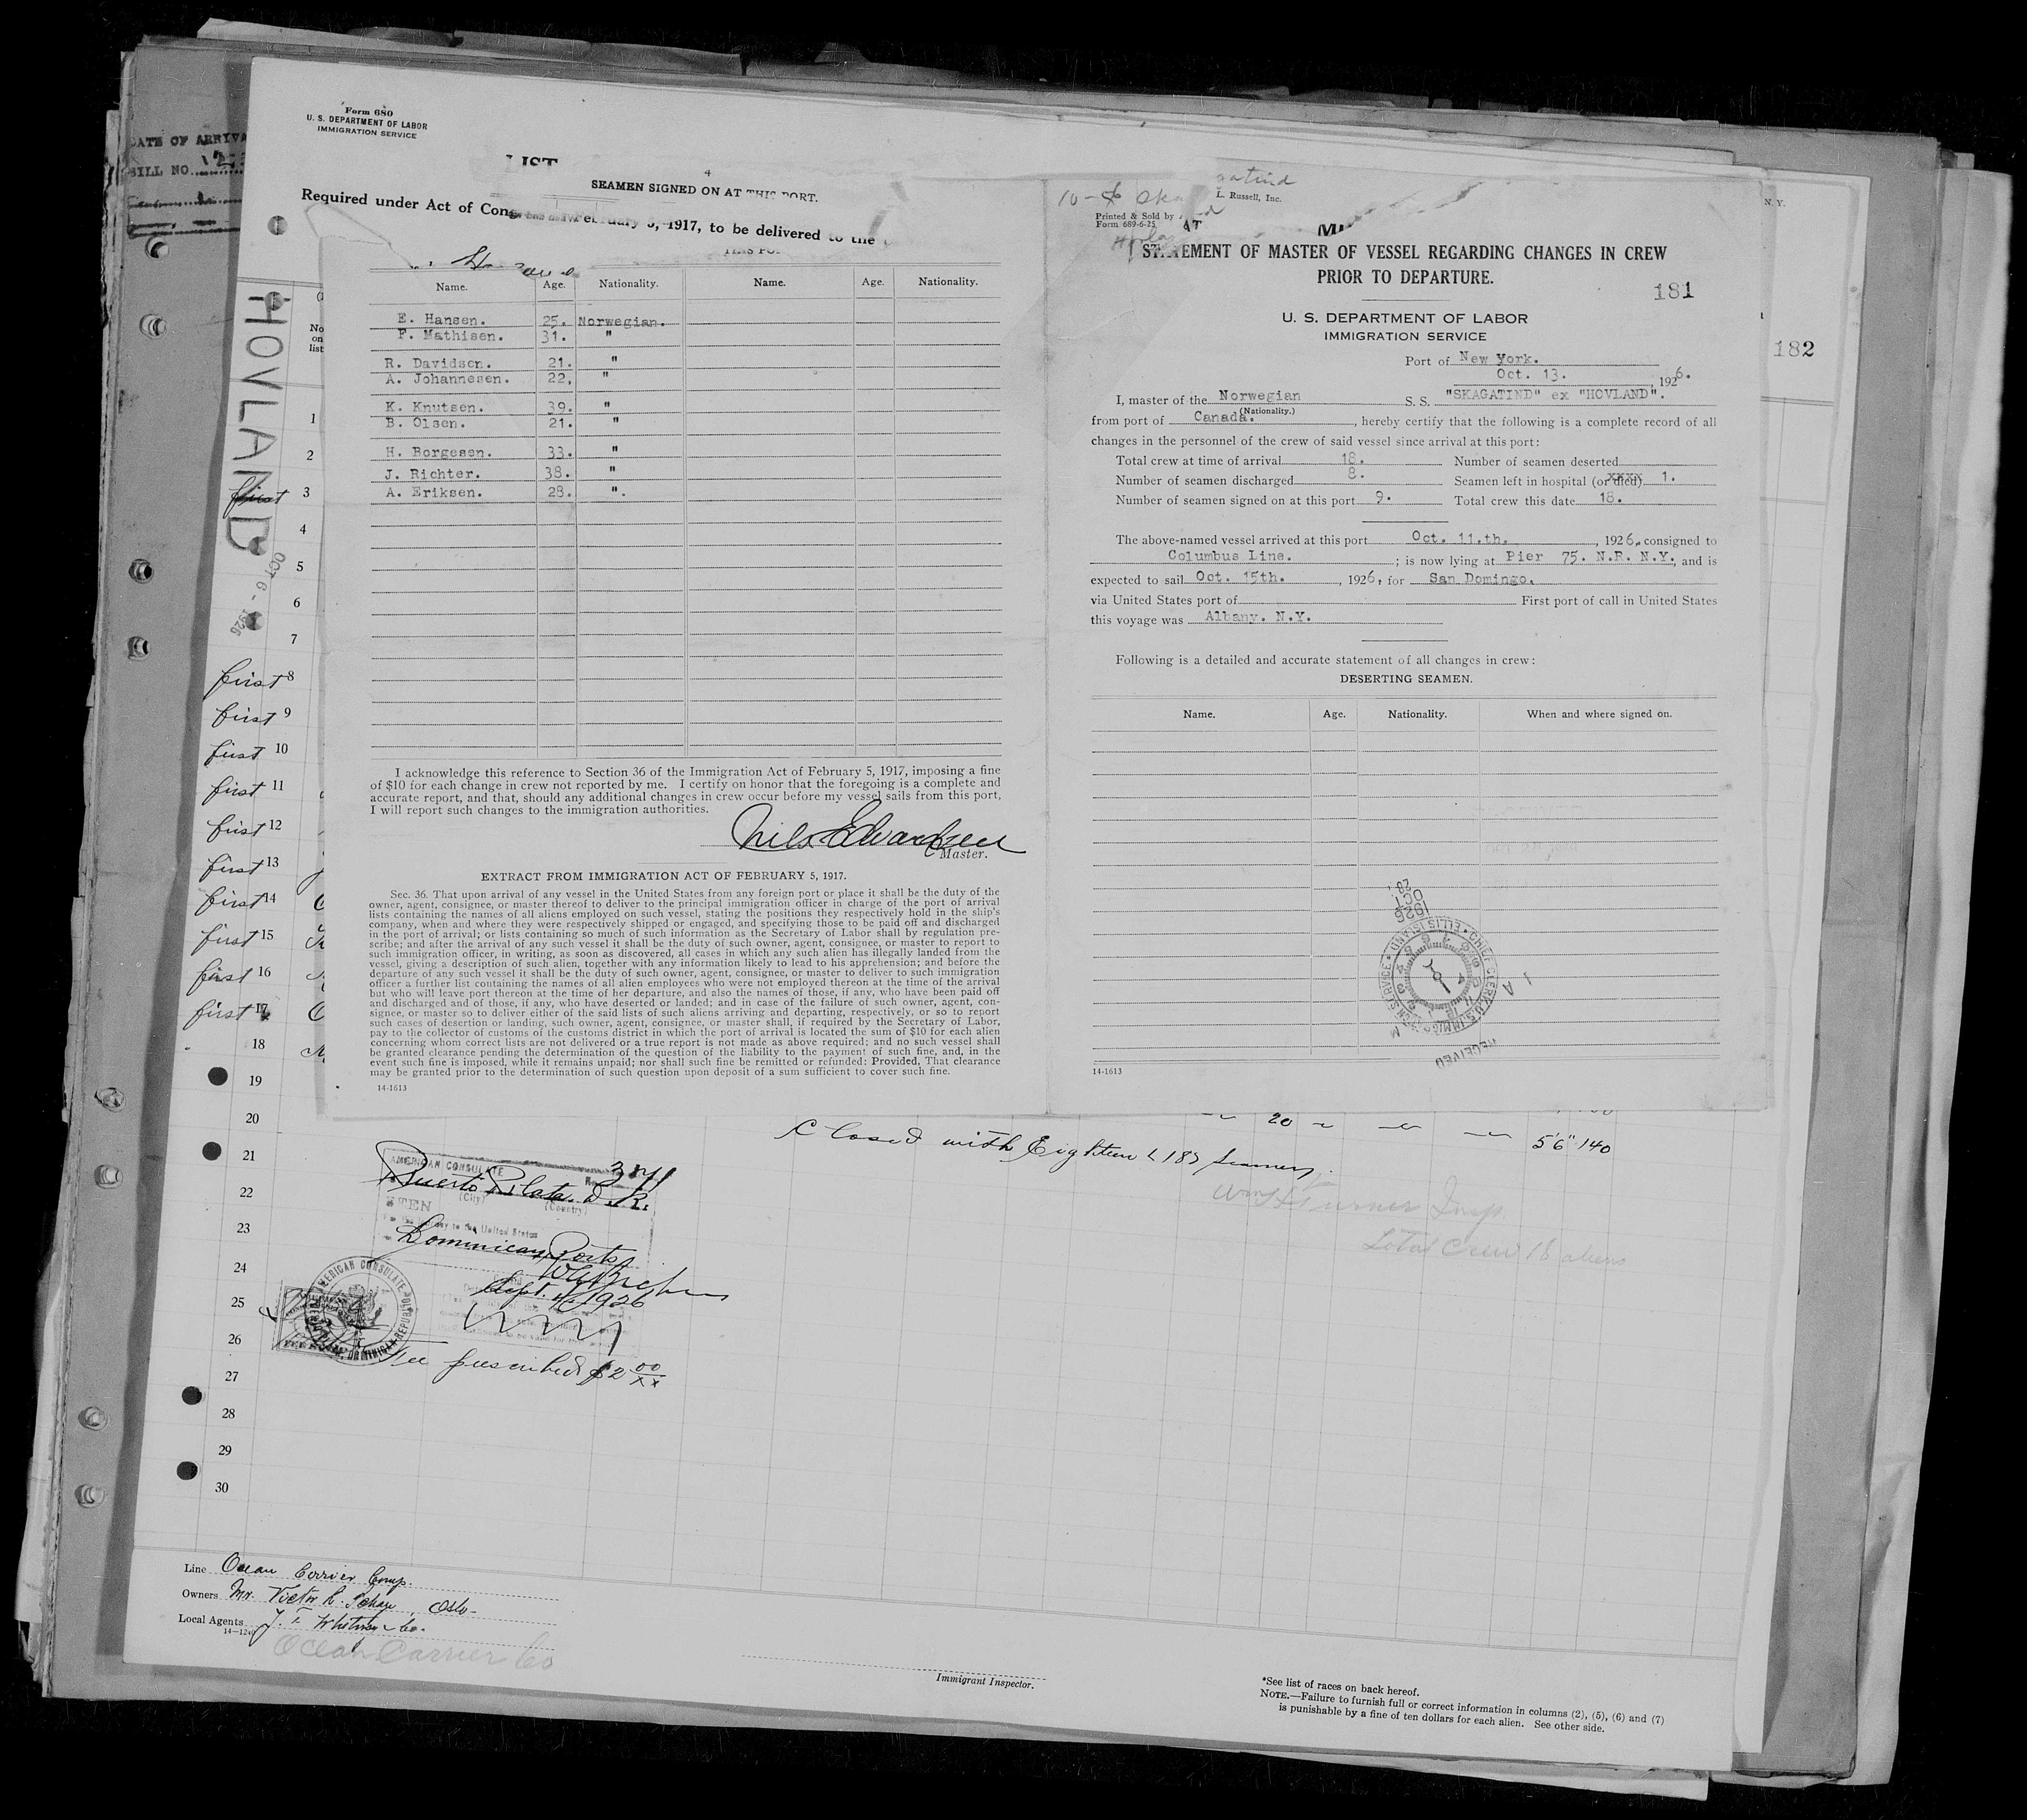 Form 680
U. S. DEPARTMENT OF LABOR
IMMIGRATION SERVICE
DATE OF ARRIVA
BILL NO.
LIST
4
SEAMEN SIGNED ON AT THIS PORT.
Required under Act of Cong
February 5, 1917, to be delivered to the
HOVLAND
OCT 6 - 1926
No
on
list
Name. Age. Nationality. Name. Age. Nationality.
E. Hansen. 25. Norwegian.
F. Mathisen. 31. "
R. Davidsen. 21. "
A. Johannesen. 22. "
K. Knutsen. 39. "
B. Olsen. 21. "
H. Borgesen. 33. "
J. Richter. 38. "
A. Eriksen. 28. ".
I acknowledge this reference to Section 36 of the Immigration Act of February 5, 1917, imposing a fine
of $10 for each change in crew not reported by me. I certify on honor that the foregoing is a complete and
accurate report, and that, should any additional changes in crew occur before my vessel sails from this port,
I will report such changes to the immigration authorities.
Nils Edvardsen
Master.
EXTRACT FROM IMMIGRATION ACT OF FEBRUARY 5, 1917.
Sec. 36. That upon arrival of any vessel in the United States from any foreign port or place it shall be the duty of the
owner, agent, consignee, or master thereof to deliver to the principal immigration officer in charge of the port of arrival
lists containing the names of all aliens employed on such vessel, stating the positions they respectively hold in the ship's
company, when and where they were respectively shipped or engaged, and specifying those to be paid off and discharged
in the port of arrival; or lists containing so much of such information as the Secretary of Labor shall by regulation pre-
scribe; and after the arrival of any such vessel it shall be the duty of such owner, agent, consignee, or master to report to
such immigration officer, in writing, as soon as discovered, all cases in which any such alien has illegally landed from the
vessel, giving a description of such alien, together with any information likely to lead to his apprehension; and before the
departure of any such vessel it shall be the duty of such owner, agent, consignee, or master to deliver to such immigration
officer a further list containing the names of all alien employees who were not employed thereon at the time of the arrival
but who will leave port thereon at the time of her departure, and also the names of those, if any, who have been paid off
and discharged and of those, if any, who have deserted or landed; and in case of the failure of such owner, agent, con-
signee, or master so to deliver either of the said lists of such aliens arriving and departing, respectively, or so to report
such cases of desertion or landing, such owner, agent, consignee, or master shall, if required by the Secretary of Labor,
pay to the collector of customs of the customs district in which the port of arrival is located the sum of $10 for each alien
concerning whom correct lists are not delivered or a true report is not made as above required; and no such vessel shall
be granted clearance pending the determination of the question of the liability to the payment of such fine, and, in the
event such fine is imposed, while it remains unpaid; nor shall such fine be remitted or refunded: Provided, That clearance
may be granted prior to the determination of such question upon deposit of a sum sufficient to cover such fine.
14-1613
L. Russell, Inc.
Printed & Sold by
Form 689-6-25
STATEMENT OF MASTER OF VESSEL REGARDING CHANGES IN CREW
PRIOR TO DEPARTURE.
181
U. S. DEPARTMENT OF LABOR
IMMIGRATION SERVICE
Port of New York.
Oct. 13. , 1926.
I, master of the Norwegian S. S. "SKAGATIND" ex "HOVLAND".
(Nationality.)
from port of Canada. , hereby certify that the following is a complete record of all
changes in the personnel of the crew of said vessel since arrival at this port:
Total crew at time of arrival 18. Number of seamen deserted
Number of seamen discharged 8. Seamen left in hospital (or died) 1.
Number of seamen signed on at this port 9. Total crew this date 18.
The above-named vessel arrived at this port Oct. 11.th. , 1926. consigned to
Columbus Line. ; is now lying at Pier 75. N.R. N.Y., and is
expected to sail Oct. 15th. , 1926, for San Domingo.
via United States port of First port of call in United States
this voyage was Albany. N.Y.
Following is a detailed and accurate statement of all changes in crew:
DESERTING SEAMEN.
Name. Age. Nationality. When and where signed on.
1926
OCT
28
RECEIVED
14-1613
N. Y.
182
1
2
first 3
4
5
6
7
first 8
first 9
first 10
first 11
first 12
first 13
first 14
first 15
first 16
first 17
18
19
20
21
22
23
24
25
26
27
28
29
30
20
5'6" 140
Closed with Eighteen (18) seamen.
Total Crew 18 aliens
AMERICAN CONSULATE
341
Puerto Plata D.R.
(City) (Country)
Dominican Ports
Sept. 1926
Fee prescribed $2 00/xx
Line Ocean Carrier Comp.
Owners Mr. Victor
Oslo
Local Agents J. T. Whitney & Co.
14-1240
Ocean Carrier Co
Immigrant Inspector.
*See list of races on back hereof.
NOTE.—Failure to furnish full or correct information in columns (2), (5), (6) and (7)
is punishable by a fine of ten dollars for each alien. See other side.